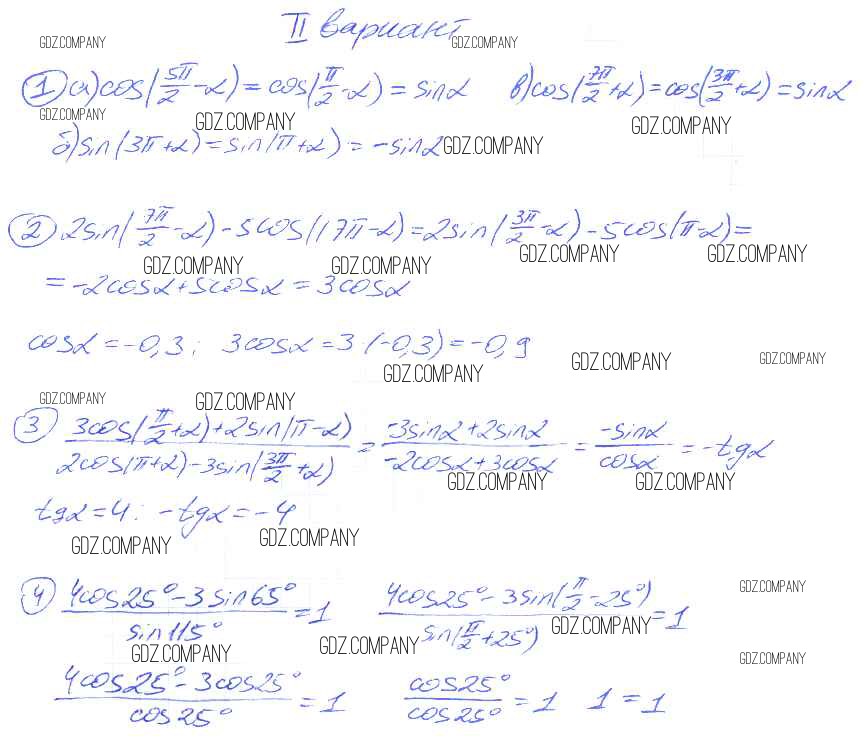 II вариант
GDZ.COMPANY GDZ.COMPANY
1 а) cos(5π/2 - α) = cos(π/2 - α) = sinα в) cos(7π/2 + α) = cos(3π/2 + α) = sinα
GDZ.COMPANY GDZ.COMPANY GDZ.COMPANY
б) sin(3π + α) = sin(π + α) = -sinα GDZ.COMPANY
2 2sin(7π/2 - α) - 5cos(17π - α) = 2sin(3π/2 - α) - 5cos(π - α) =
GDZ.COMPANY GDZ.COMPANY GDZ.COMPANY GDZ.COMPANY
= -2cosα + 5cosα = 3cosα
cosα = -0,3; 3cosα = 3·(-0,3) = -0,9
GDZ.COMPANY GDZ.COMPANY GDZ.COMPANY
GDZ.COMPANY GDZ.COMPANY
3 (3cos(π/2 + α) + 2sin(π - α))/(2cos(π + α) - 3sin(3π/2 + α)) = (-3sinα + 2sinα)/(-2cosα + 3cosα) = -sinα/cosα = -tgα
GDZ.COMPANY GDZ.COMPANY
tgα = 4; -tgα = -4
GDZ.COMPANY GDZ.COMPANY
4 (4cos25° - 3sin65°)/sin115° = 1 (4cos25° - 3sin(π/2 - 25°))/sin(π/2 + 25°) = 1
GDZ.COMPANY GDZ.COMPANY
GDZ.COMPANY GDZ.COMPANY GDZ.COMPANY
(4cos25° - 3cos25°)/cos25° = 1 cos25°/cos25° = 1 1 = 1